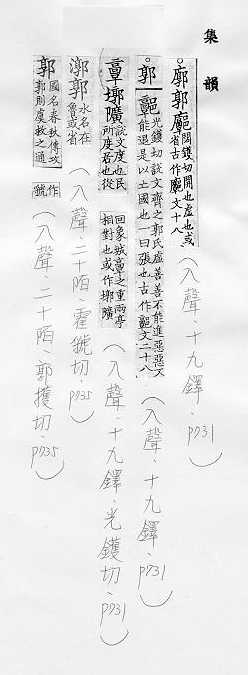 集韻
廓郭𢊍 闊鑊切開也虛也或省古作𢊍文十八
(入聲．十九鐸．p731)
郭 光鑊切說文齊之郭氏虛善善不能進惡惡不能退是以土國也一曰張也古作文二十八
(入聲．十九鐸．p731)
墎 說文度也民所度居也从回象城之重兩亭相對也或作墎
(入聲．十九鐸．光鑊切．p731)
漷郭 水名在魯或省
(入聲．二十陌．霍虢切．p735)
郭 國名春秋傳攻郭則虞救之通作虢
(入聲．二十陌．郭擭切．p735)